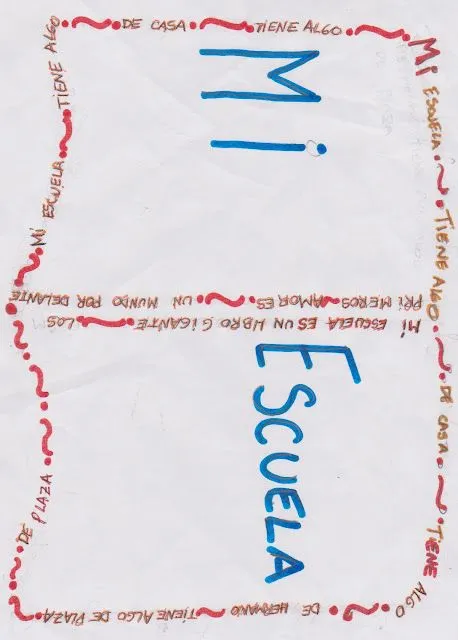 Mi
ESCUELA
MI ESCUELA TIENE ALGO DE CASA TIENE ALGO
DE HERMANO TIENE ALGO DE PLAZA
DE PLAZA
MI ESCUELA TIENE ALGO
DE CASA TIENE ALGO
MI ESCUELA ES UN LIBRO GIGANTE LOS
PRIMEROS AMORES UN MUNDO POR DELANTE